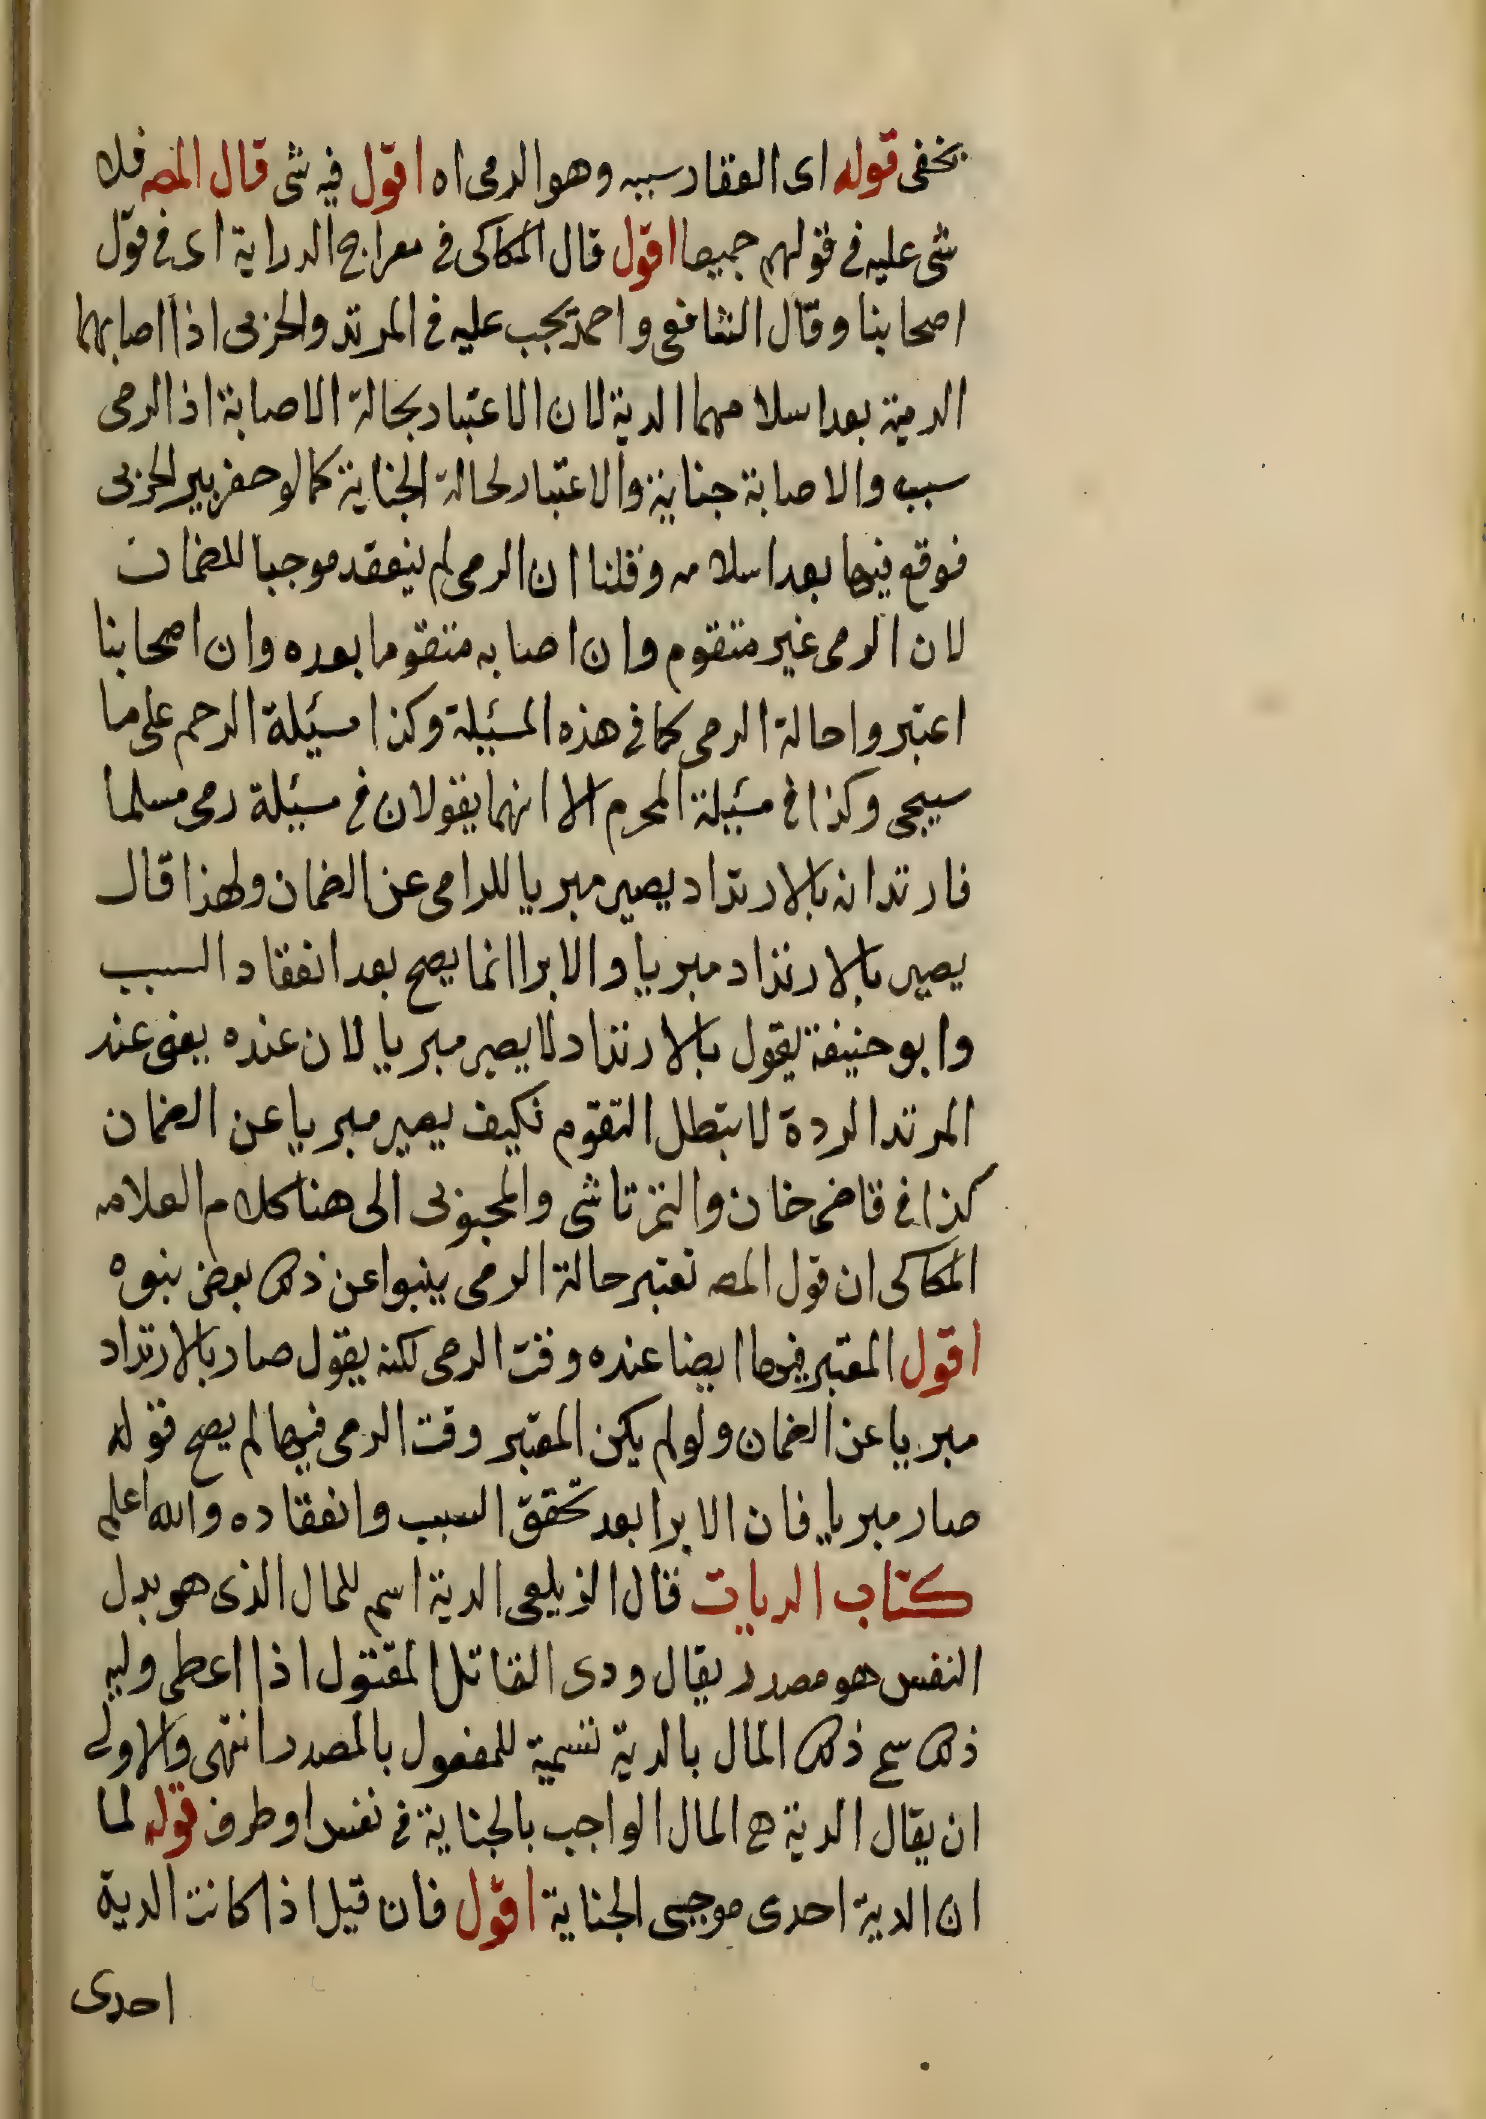 يخفى قوله اى انعقاد سببه وهو الرمى اه اقول فيه شى قال المصه فلا
شى عليه فى قولهم جميعا اقول قال الكاكى فى معراج الدراية اى فى قول
اصحابنا وقال الشافعى واحمد يجب عليه فى المرتد والحربى اذا اصابهما
الرمية بعد اسلامهما الدية لان الاعتبار بحالة الاصابة اذ الرمى
سبب والاصابة جناية والاعتبار لحالة الجناية كما لو حفر بير لحربى
فوقع فيها بعد اسلامه وقلنا ان الرمى لم ينعقد موجبا للضمان
لان الرمى غير متقوم وان اصابه متقوما بعده وان اصحابنا
اعتبروا حالة الرمى كما فى هذه المسئلة وكذا مسئلة الرحم على ما
سيجى وكذا فى مسئلة المحرم الا انهما يقولان فى مسئلة رمى مسلما
فارتد انه بالارتداد يصير مبريا للرامى عن الضمان ولهذا قال
يصير بالارتداد مبريا والابرا انما يصح بعد انعقاد السبب
وابو حنيفة يقول بالارتداد لا يصير مبريا لان عنده يعنى عند
المرتد الردة لا تبطل التقوم فكيف يصير مبريا عن الضمان
كذا فى قاضى خان والتمرتاشى والمحبوبى الى هنا كلام العلامه
الكاكى ان قول المصه نعتبر حالة الرمى ينبوا عن ذلك بعض نبوه
اقول المعتبر فيها ايضا عنده وقت الرمى لكنه يقول صار بالارتداد
مبريا عن الضمان ولو لم يكن المعتبر وقت الرمى فيها لم يصح قوله
صار مبريا فان الابرا بعد تحقق السبب وانعقاده والله اعلم
كتاب الديات قال الزيلعى الدية اسم للمال الذى هو بدل
النفس هو مصدر يقال ودى القاتل المقتول اذا اعطى وليه
ذلك سمى ذلك المال بالدية تسمية للمفعول بالمصدر انتهى والاولى
ان يقال الدية هى المال الواجب بالجناية فى نفس او طرف قوله لما
ان الدية احدى موجبى الجناية اقول فان قيل اذا كانت الدية
احدى